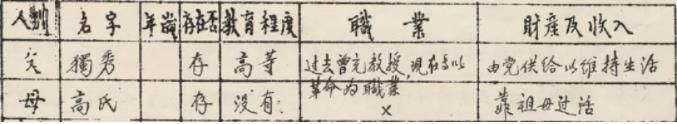 人别 名字 年歲 存在否 教育程度 職業 財產及收入
父 獨秀 存 高等 过去曾充教授,现在专以革命为職業 由党供给以维持生活
母 高氏 存 没有 × 靠祖母过活